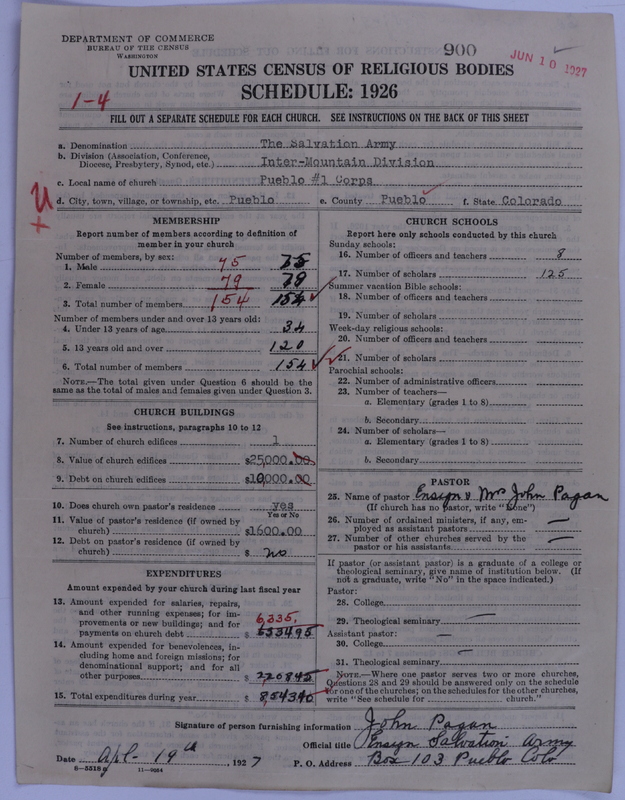 DEPARTMENT OF COMMERCE
BUREAU OF THE CENSUS
WASHINGTON
900
JUN 10 1927
UNITED STATES CENSUS OF RELIGIOUS BODIES
SCHEDULE: 1926
1-4
FILL OUT A SEPARATE SCHEDULE FOR EACH CHURCH. SEE INSTRUCTIONS ON THE BACK OF THIS SHEET
a. Denomination The Salvation Army
b. Division (Association, Conference, Diocese, Presbytery, Synod, etc.) Inter-Mountain Division
c. Local name of church Pueblo #1 Corps
d. City, town, village, or township, etc. Pueblo e. County Pueblo f. State Colorado
MEMBERSHIP
Report number of members according to definition of
member in your church
Number of members, by sex:
1. Male 75 75
2. Female 79 79
3. Total number of members 154 154
Number of members under and over 13 years old:
4. Under 13 years of age 34
5. 13 years old and over 120
6. Total number of members 154
NOTE.—The total given under Question 6 should be
same as the total of males and females given under Question 3.
CHURCH BUILDINGS
See instructions, paragraphs 10 to 12
7. Number of church edifices 1
8. Value of church edifices $25,000.00
9. Debt on church edifices $10,000.00
10. Does church own pastor's residence yes
Yes or No
11. Value of pastor's residence (if owned by
church) $1600.00
12. Debt on pastor's residence (if owned by
church) $ no
EXPENDITURES
Amount expended by your church during last fiscal year
13. Amount expended for salaries, repairs,
and other running expenses; for im-
provements or new buildings; and for 6,335.
payments on church debt $ 633495
14. Amount expended for benevolences, in-
cluding home and foreign missions; for
denominational support; and for all
other purposes $ 220845
15. Total expenditures during year $ 854340
CHURCH SCHOOLS
Report here only schools conducted by this church
Sunday schools:
16. Number of officers and teachers 8
17. Number of scholars 125
Summer vacation Bible schools:
18. Number of officers and teachers
19. Number of scholars
Week-day religious schools:
20. Number of officers and teachers
21. Number of scholars
Parochial schools:
22. Number of administrative officers
23. Number of teachers—
a. Elementary (grades 1 to 8)
b. Secondary
24. Number of scholars—
a. Elementary (grades 1 to 8)
b. Secondary
PASTOR
25. Name of pastor Ensign & Mrs John Pagan
(If church has no pastor, write "None")
26. Number of ordained ministers, if any, em-
ployed as assistant pastors —
27. Number of other churches served by the
pastor or his assistants —
If pastor (or assistant pastor) is a graduate of a college or
theological seminary, give name of institution below. (If
not a graduate, write "No" in the space indicated.)
Pastor:
28. College
29. Theological seminary —
Assistant pastor: —
30. College
31. Theological seminary —
NOTE.—Where one pastor serves two or more churches,
Questions 28 and 29 should be answered only on the schedule
for one of the churches; on the schedules for the other churches,
write "See schedule for church."
Signature of person furnishing information John Pagan
Official title Ensign Salvation Army
Date Apl- 19th, 1927 P. O. Address Box 103 Pueblo Colo
6-5518 a 11-9064